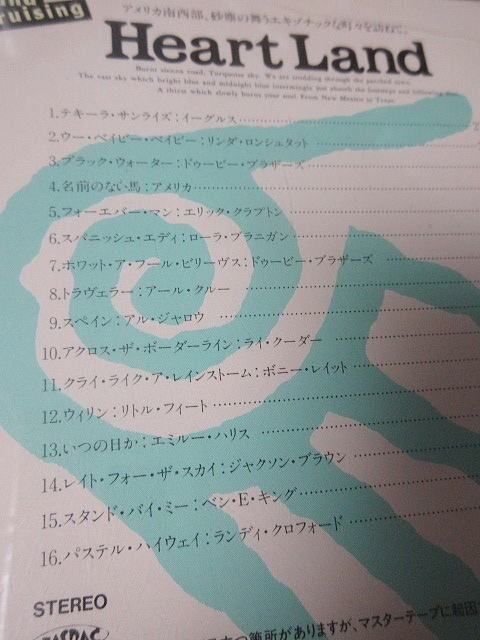 ruising
アメリカ南西部、砂塵の舞うエキゾチックな町々を訪ねて。
Heart Land
Burnt sienna road, Turquoise sky. We are trudging through the parched town.
The vast sky which bright blue and midnight blue intermingle just absorb the footsteps and
A thirst which slowly burns your soul. From New Mexico to Texas.
1.テキーラ・サンライズ：イーグルス
2.ウー・ベイビー・ベイビー：リンダ・ロンシュタット
3.ブラック・ウォーター：ドゥービー・ブラザーズ
4.名前のない馬：アメリカ
5.フォーエバー・マン：エリック・クラプトン
6.スパニッシュ・エディ：ローラ・ブラニガン
7.ホワット・ア・フール・ビリーヴス：ドゥービー・ブラザーズ
8.トラヴェラー：アール・クルー
9.スペイン：アル・ジャロウ
10.アクロス・ザ・ボーダーライン：ライ・クーダー
11.クライ・ライク・ア・レインストーム：ボニー・レイット
12.ウィリン：リトル・フィート
13.いつの日か：エミルー・ハリス
14.レイト・フォー・ザ・スカイ：ジャクソン・ブラウン
15.スタンド・バイ・ミー：ベン・E・キング
16.パステル・ハイウェイ：ランディ・クロフォード
STEREO
JASRAC
箇所がありますが、マスターテープに起因